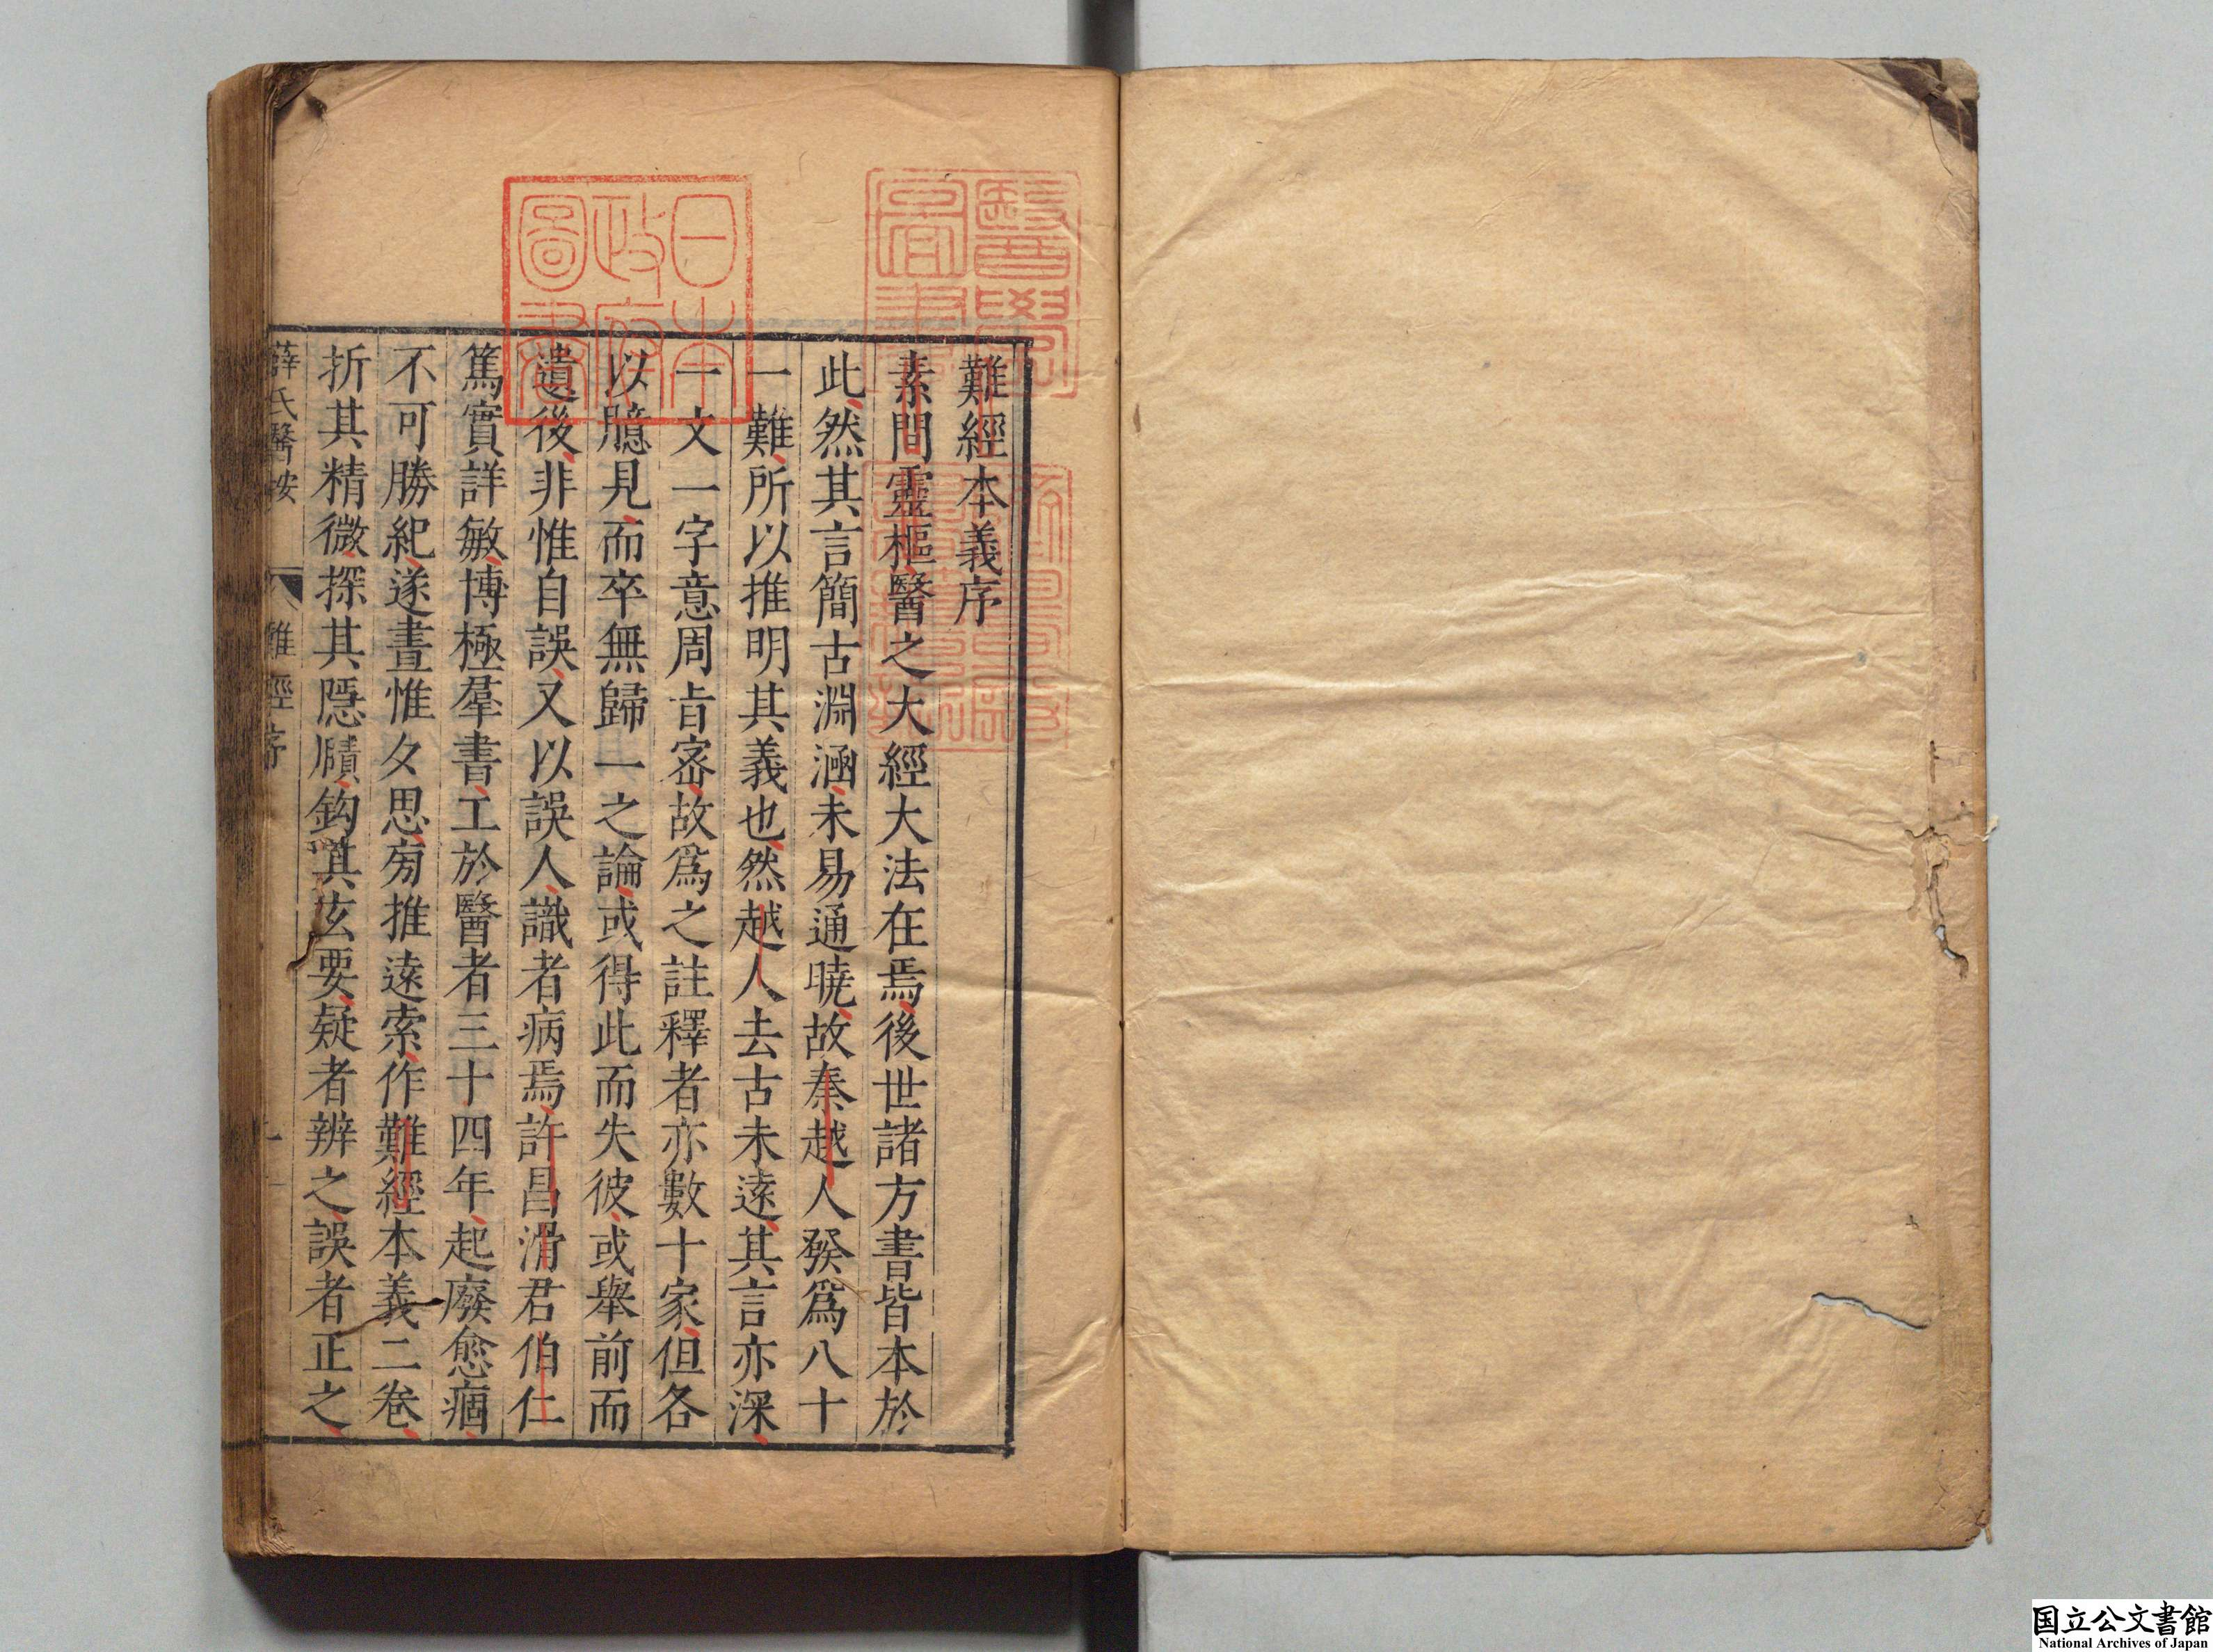 難經本義序
素問靈樞醫之大經大法在焉後世諸方書皆本於
此然其言簡古淵涵未易通曉故秦越人發爲八十
一難所以推明其義也然越人去古未遠其言亦深
一文一字意周旨密故爲之註釋者亦數十家但各
以臆見而卒無歸一之論或得此而失彼或舉前而
遺後非惟自誤又以誤人識者病焉許昌滑君伯仁
篤實詳敏博極羣書工於醫者三十四年起廢愈痼
不可勝紀遂晝惟夕思旁推遠索作難經本義二卷
折其精微探其隱賾鈎其玄要疑者辨之誤者正之
薛氏醫按 難經序 一
醫學圖書
日本政府圖書
国立公文書館
National Archives of Japan